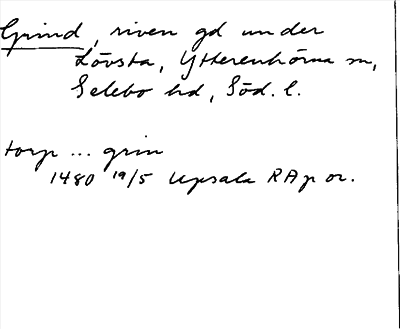 Grind, riven gd under
Lövsta, Ytterenhörna sn,
Selebo hd, Söd. l.
torp ... grin
1480 19/5 Upsala RAp or.